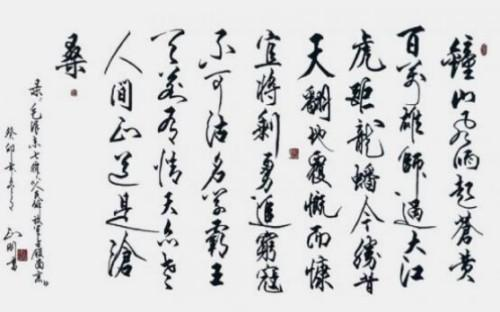 鐘山风雨起蒼黄
百萬雄師過大江
虎距龍蟠今勝昔
天翻地覆慨而慷
宜將剩勇追窮寇
不可沽名学霸王
天若有情天亦老
人間正道是滄
桑
录毛澤东七律人民解放军占領南京
癸卯 書